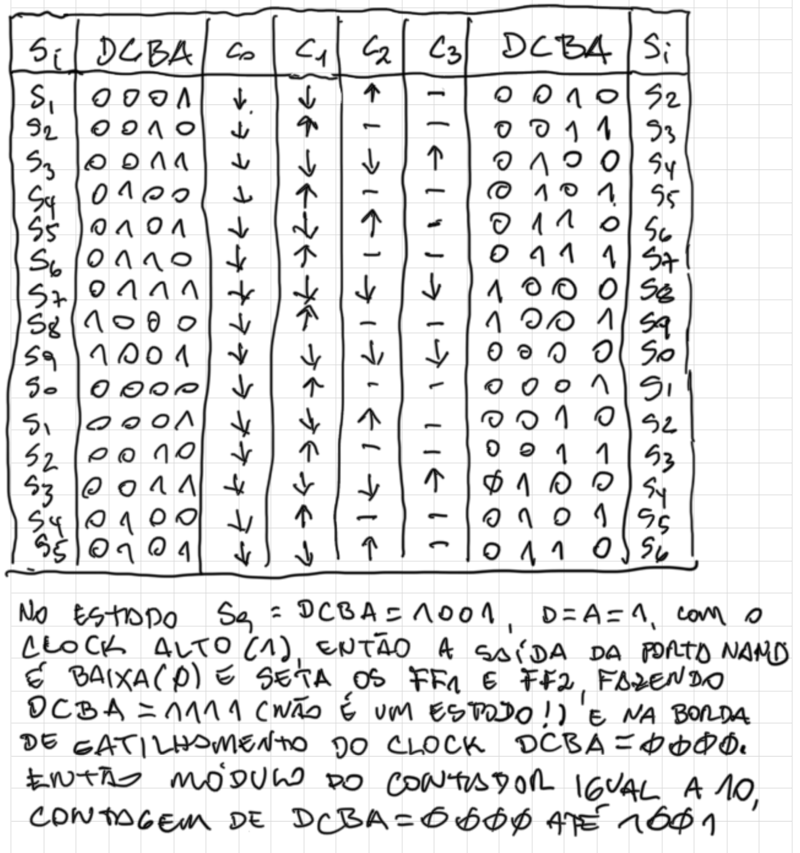 Si DCBA C0 C1 C2 C3 DCBA Si
S1 0001 ↓ ↓ ↑ - 0010 S2
S2 0010 ↓ ↑ - - 0011 S3
S3 0011 ↓ ↓ ↓ ↑ 0100 S4
S4 0100 ↓ ↑ - - 0101 S5
S5 0101 ↓ ↓ ↑ - 0110 S6
S6 0110 ↓ ↑ - - 0111 S7
S7 0111 ↓ ↓ ↓ ↓ 1000 S8
S8 1000 ↓ ↑ - - 1001 S9
S9 1001 ↓ ↓ ↓ ↓ 0000 S0
S0 0000 ↓ ↑ - - 0001 S1
S1 0001 ↓ ↓ ↑ - 0010 S2
S2 0010 ↓ ↑ - - 0011 S3
S3 0011 ↓ ↓ ↓ ↑ 0100 S4
S4 0100 ↓ ↑ - - 0101 S5
S5 0101 ↓ ↓ ↑ - 0110 S6
NO ESTADO S9 = DCBA = 1001, D=A=1, com o
CLOCK ALTO (1), ENTÃO A SAÍDA DA PORTA NAND
É BAIXA(0) E SETA OS FF1 E FF2, FAZENDO
DCBA = 1111 (NÃO É UM ESTADO!) E NA BORDA
DE GATILHAMENTO DO CLOCK DCBA = 0000.
ENTÃO MÓDULO DO CONTADOR IGUAL A 10,
CONTAGEM DE DCBA = 0000 ATÉ 1001